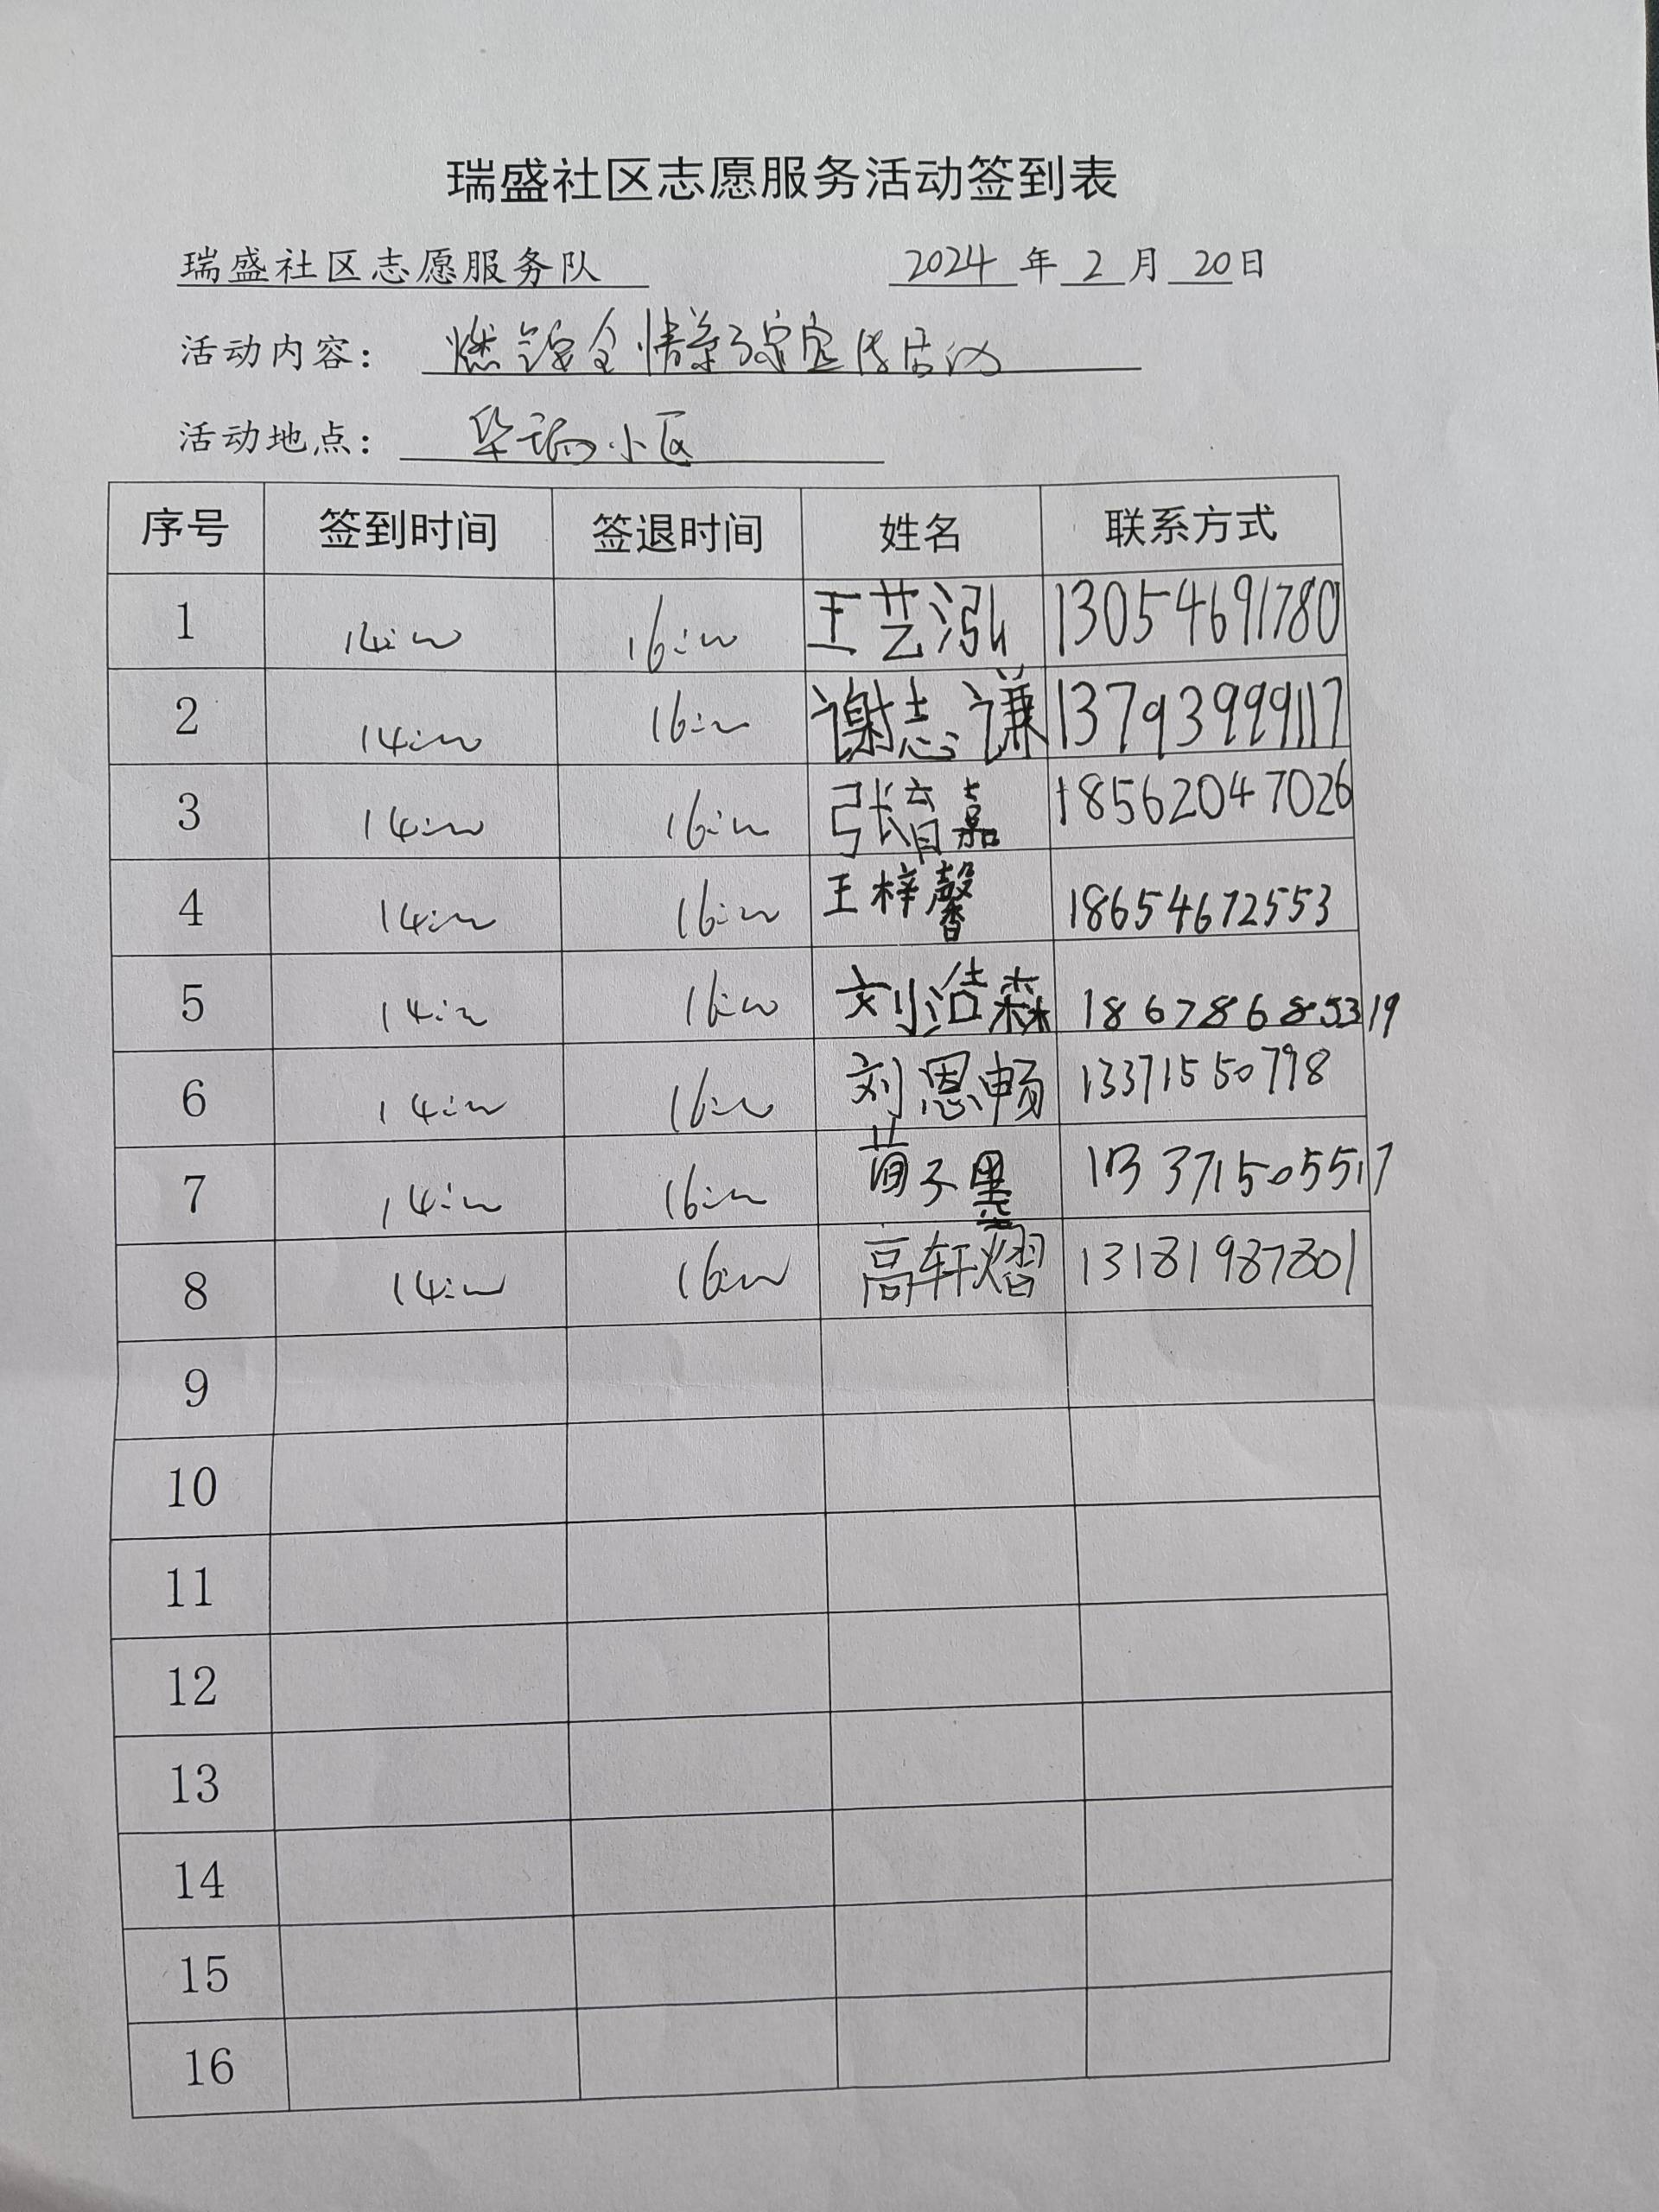 瑞盛社区志愿服务活动签到表
瑞盛社区志愿服务队 2024 年 2 月 20 日
活动内容： 燃 安全 宣传活动
活动地点： 小区
序号 签到时间 签退时间 姓名 联系方式
1 14:00 16:00 王艺泓 13054691780
2 14:00 16:00 谢志谦 13793999117
3 14:00 16:00 张育嘉 18562047026
4 14:00 16:00 王梓馨 18654672553
5 14:00 16:00 刘浩森
6 14:00 16:00 刘恩畅 13371550798
7 14:00 16:00 子墨
8 14:00 16:00 高轩熠 13181987801
9
10
11
12
13
14
15
16